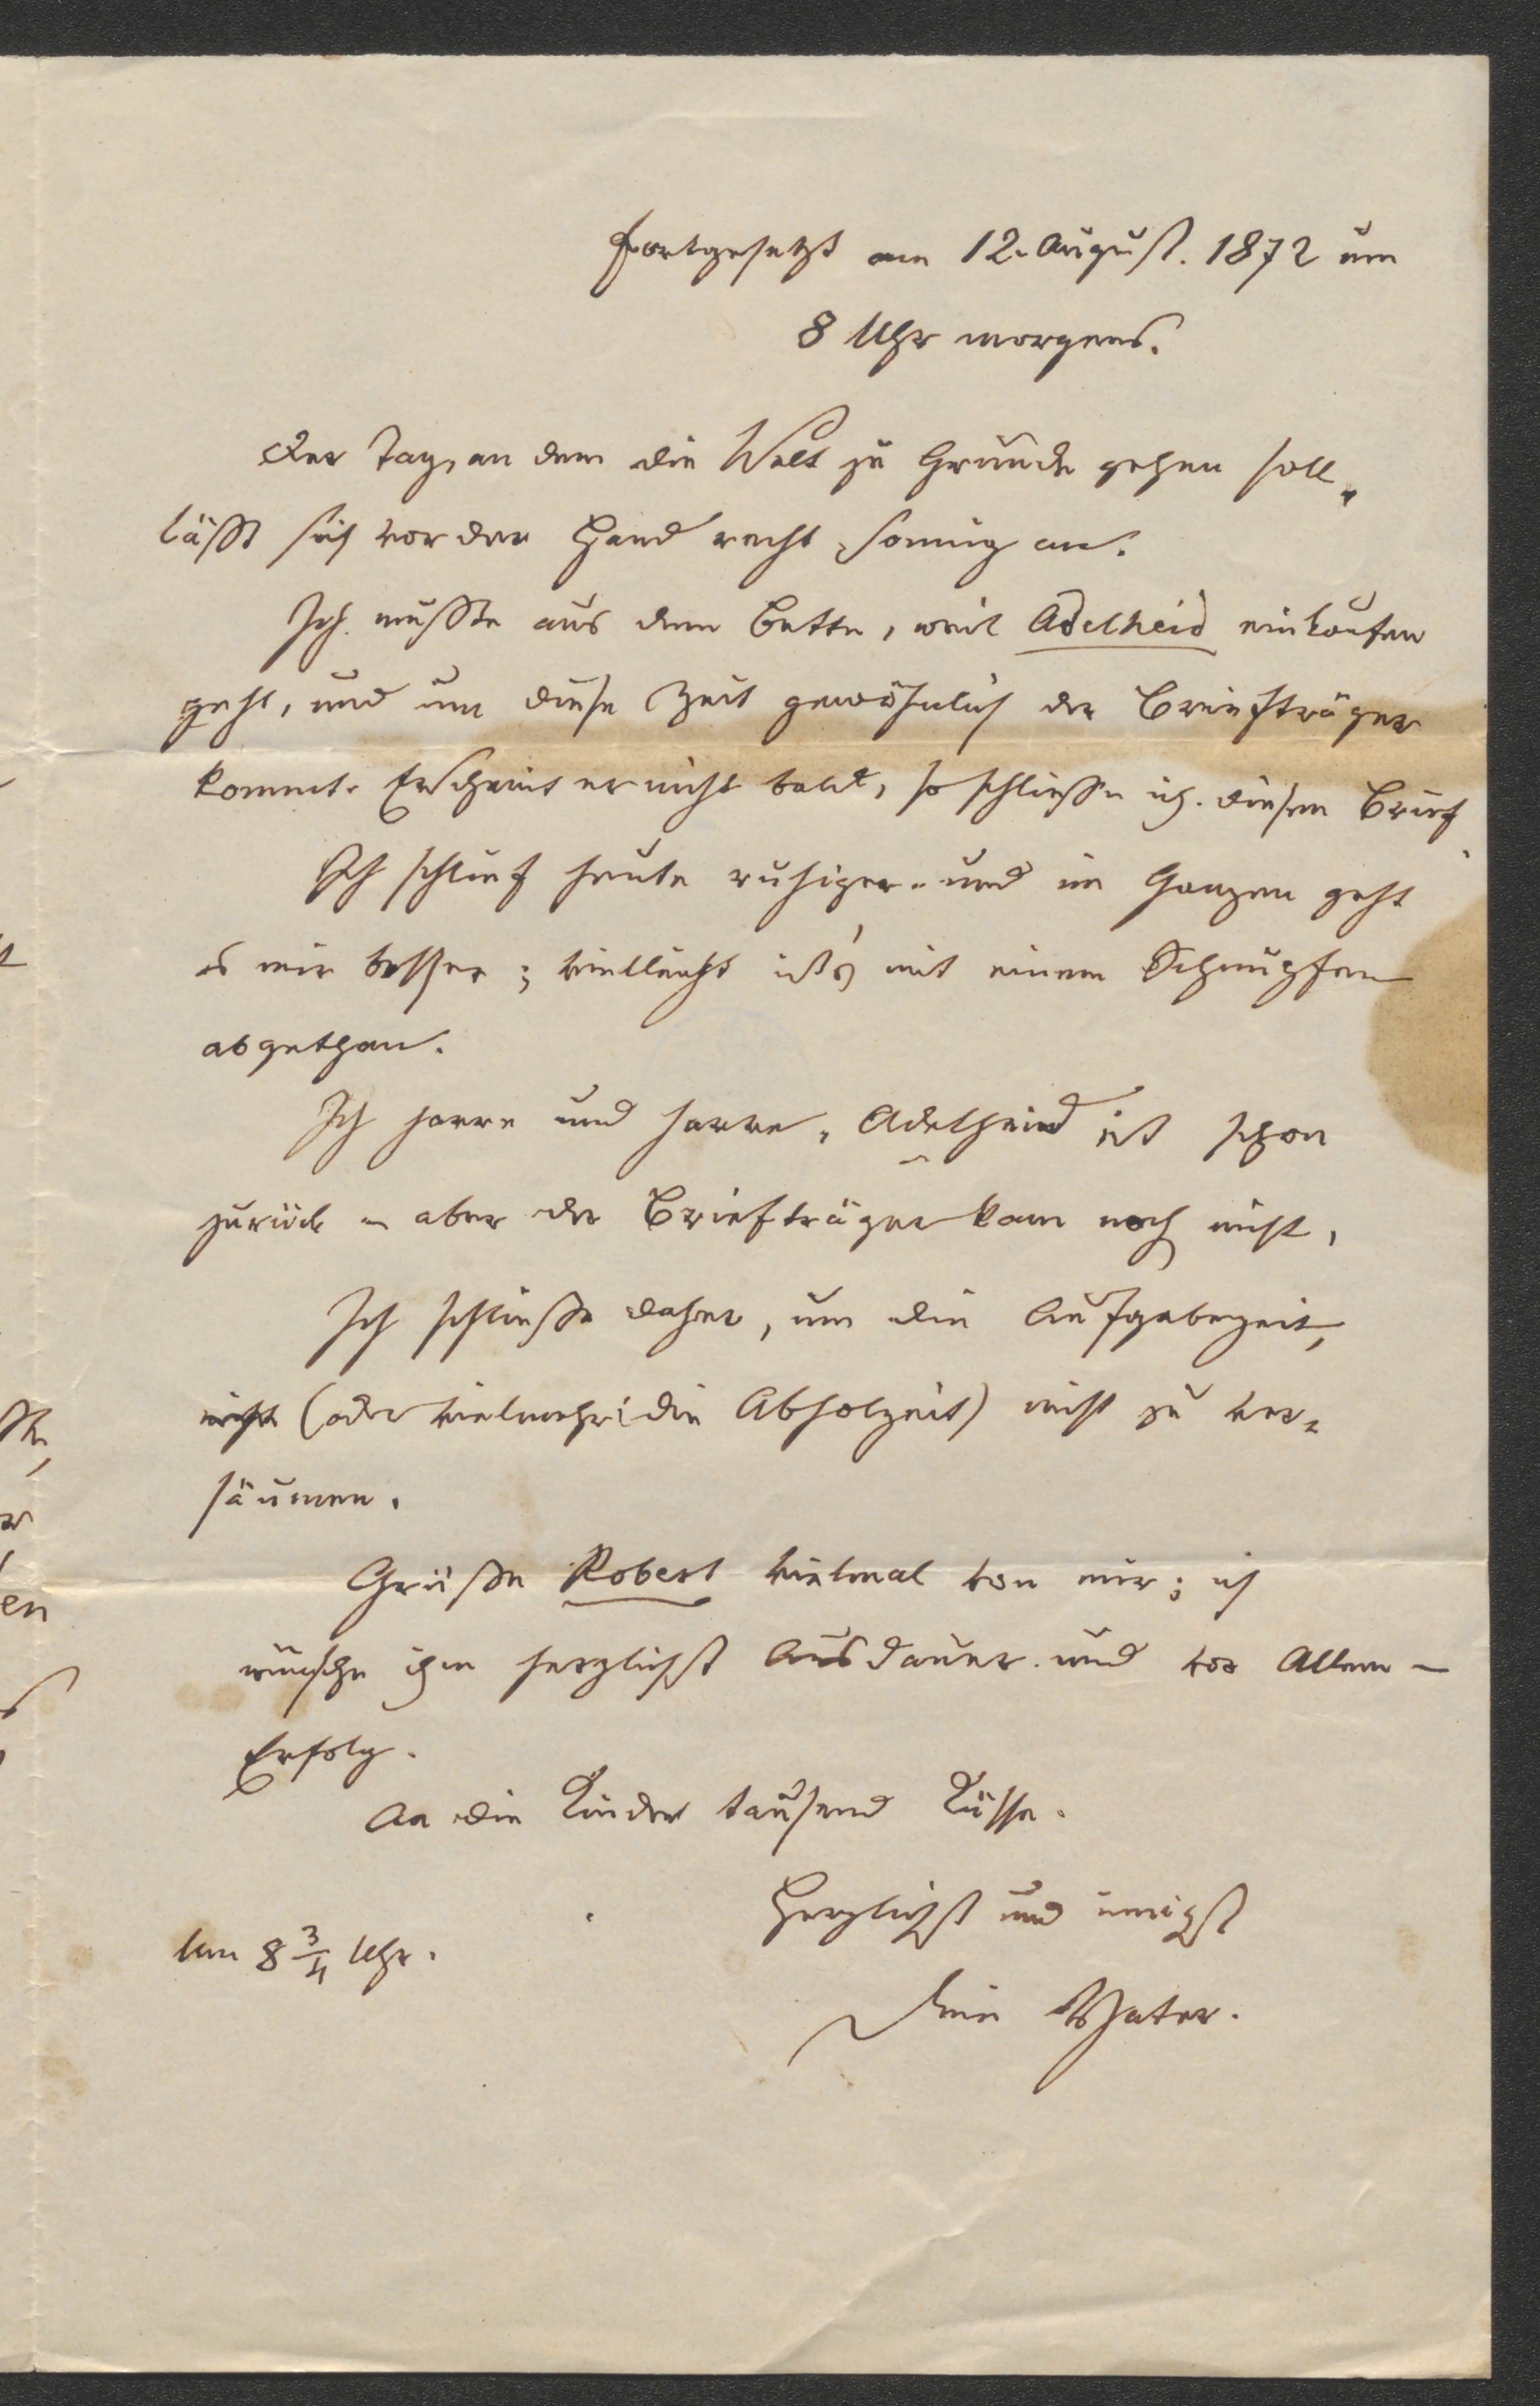 Fortgesetzt am 12. August. 1872 um
8 Uhr morgens.
Der Tag, an dem die Welt zu Grunde gehen soll,
läßt sich vor der Hand recht sonnig an.
Ich mußte aus dem Bette, weil Adelheid einkaufen
geht, und um diese Zeit gewöhnlich der Briefträger
kommt. Erscheint er nicht bald, so schließe ich diesen Brief.
Ich schlief heute ruhiger - und im Ganzen geht
es mir besser; vielleicht ist's mit einem Schnupfen
abgethan.
Ich harre und harre, Adelheid ist schon
zurück - aber der Briefträger kam noch nicht,
Ich schließe daher, um die Aufgabezeit,
nicht (oder vielmehr die Abholzeit) nicht zu ver=
säumen.
Grüße Robert vielmal von mir; ich
wünsche ihm herzlichst Ausdauer und vor Allem -
Erfolg.
An die Kinder tausend Küsse.
Herzlichst und innigst
Um 8 3/4 Uhr.
Dein Vater.